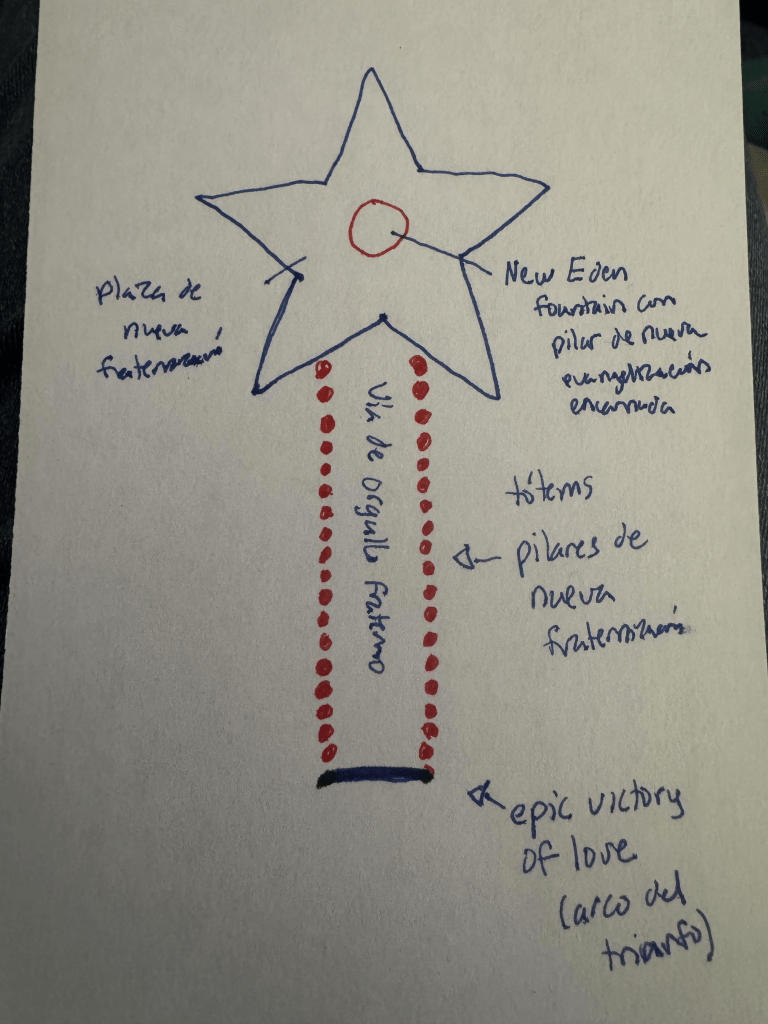 plaza de
nueva
fraternización
New Eden
fountain con
pilar de nueva
evangelización
encarnada
Vía de orgullo fraterno
tótems
pilares de
nueva
fraternización
epic victory
of love
(arco del
triunfo)